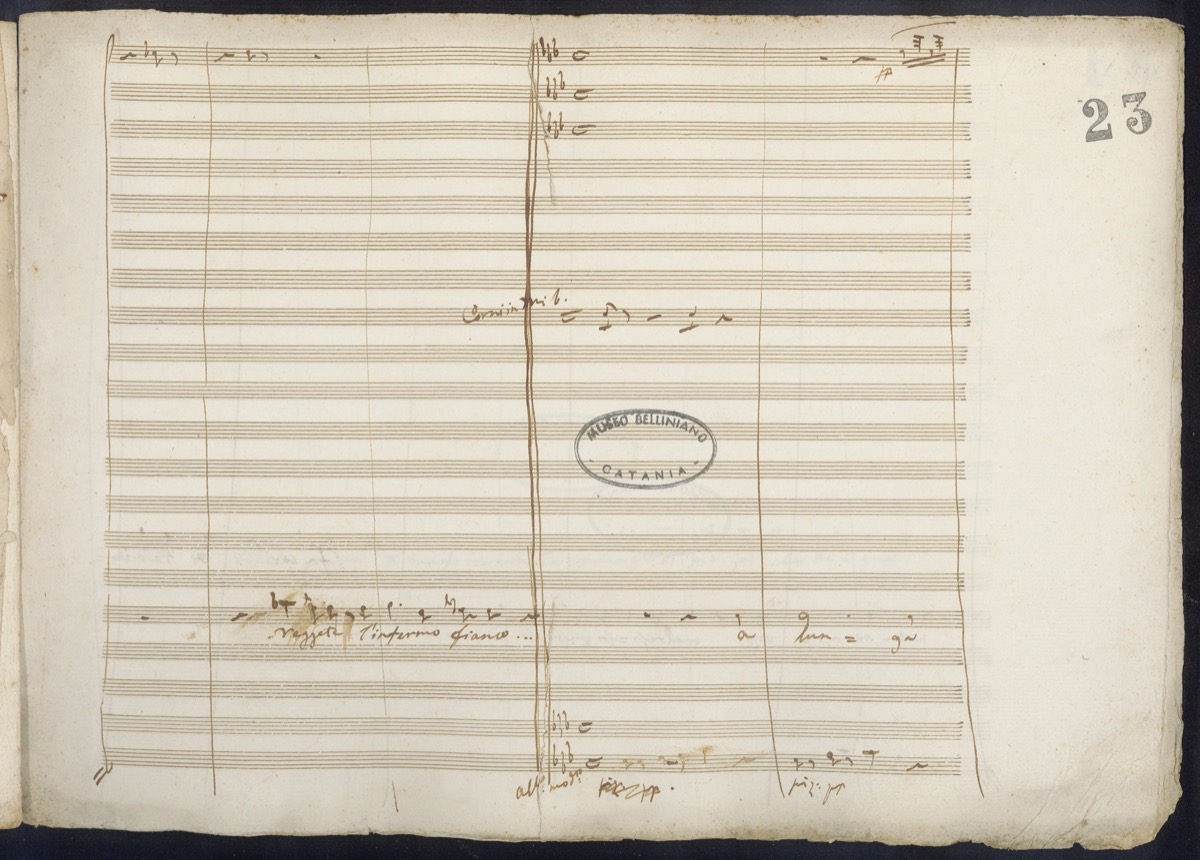 23
pp
Corni in mi b.
MUSEO BELLINIANO
CATANIA
reggete l'infermo fianco... a lun = ga
all.º mod.º pizz pp. piz: pp